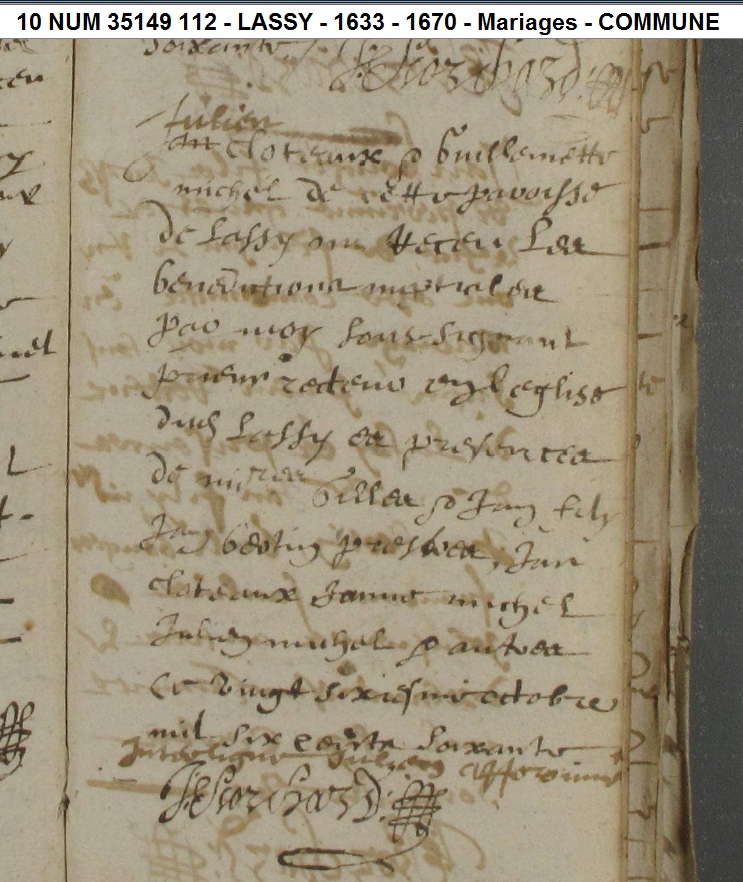 10 NUM 35149 112 - LASSY - 1633 - 1670 - Mariages - COMMUNE
soixante
Julien
Jan Cloteaux & Guillemette
michel de cette paroisse
de Lassy ont Receu Les
benedictions nuptialles
par moy soussignant
prieur recteur en l eglise
dud Lassy es presences
de Gilles & Jan filz
Jan bertin prestres, Jan
cloteaux Janne michel
Julien michel & autres
Ce vingt sixiesme octobre
mil six cents soixante
Interligne Julien